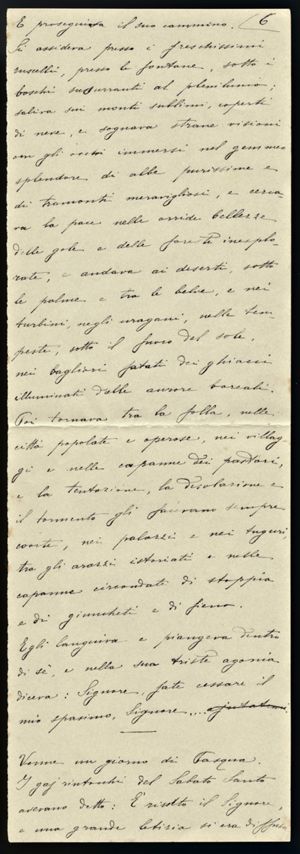 E proseguiva il suo cammino. (6
Si assideva presso i freschissimi
ruscelli, presso le fontane, sotto i
boschi susurranti al plenilunio;
saliva sui monti sublimi, coperti
di neve, e sognava strane visioni
con gli occhi immersi nel gemmeo
splendore di albe purissime e
di tramonti meravigliosi, e cerca-
va la pace nelle orride bellezze
delle gole e delle foreste inesplo-
rate, e andava ai deserti, sotto
le palme e tra le belve, e nei
turbini, negli uragani, nelle tem-
peste, sotto il fuoco del sole,
nei bagliori fatati dei ghiacci
illuminati dalle aurore boreali.
Poi tornava tra la folla, nelle
città popolate e operose, nei villag-
gi e nelle capanne dei pastori,
e la tentazione, la desolazione e
il tormento gli facevano sempre
corte, nei palazzi e nei tuguri,
tra gli arazzi istoriati e nelle
capanne circondati di stoppia
e di giuncheti e di fieno.
Egli languiva e piangeva dentro
di sè, e nella sua triste agonia
diceva: Signore, fate cessare il
mio spasimo, Signore, ....
Venne un giorno di Pasqua.
I gaj rintocchi del Sabato Santo
avevano detto: È risolto il Signore,
e una grande letizia si era diffusa